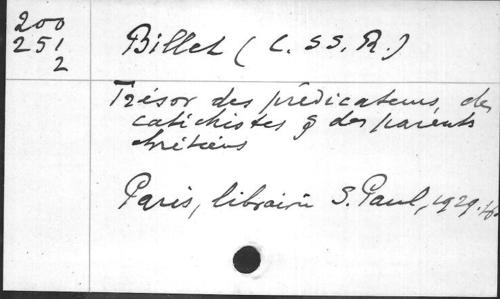 200
251
2
Billet (C. SS. R.)
Trésor des prédicateurs, des
catéchistes & des parents
chrétiens
Paris, librairie S. Paul, 1929.